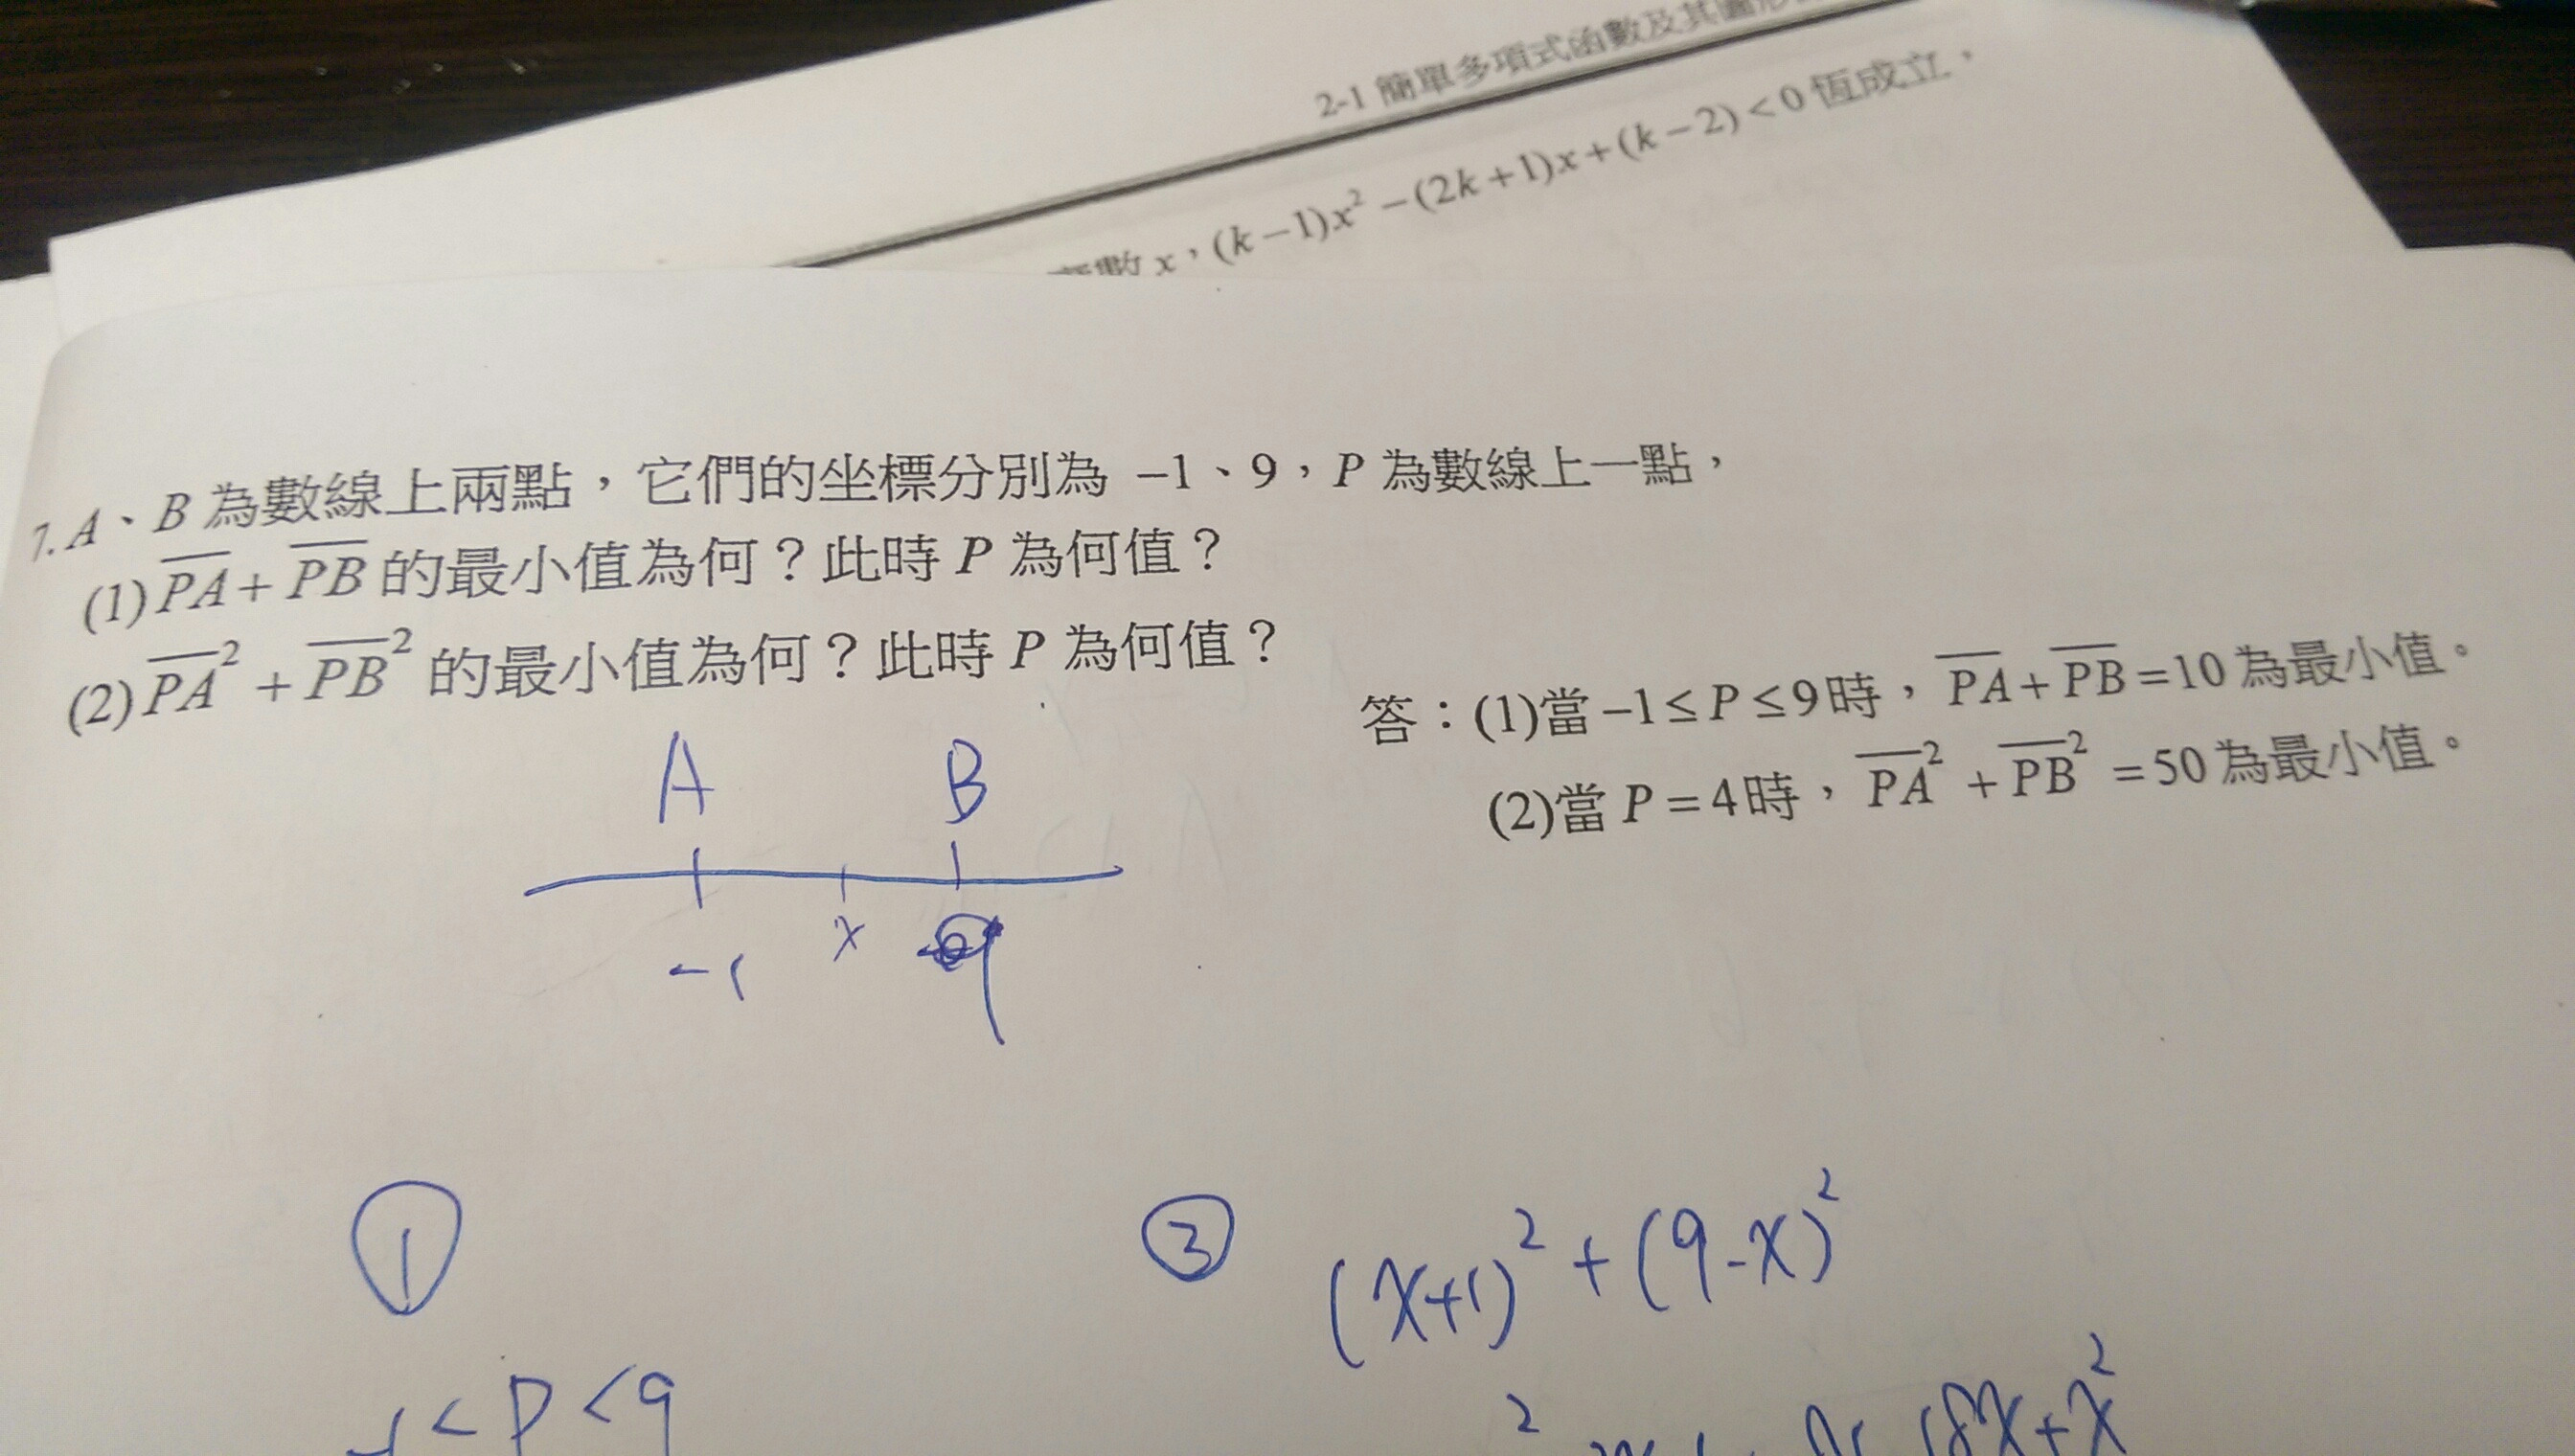 2-1 簡單多項式函數及其圖形
數 x，(k−1)x² −(2k+1)x+(k−2)<0 恆成立，
7. A、B 為數線上兩點，它們的坐標分別為 −1、9，P 為數線上一點，
(1) PA + PB 的最小值為何？此時 P 為何值？
(2) PA² + PB² 的最小值為何？此時 P 為何值？
答：(1)當 −1≤P≤9時，PA+PB=10 為最小值。
(2)當 P=4時，PA² + PB² =50 為最小值。
A B
-1 x 9
①
-1<P<9
②
(x+1)² + (9-x)²
18x+x²